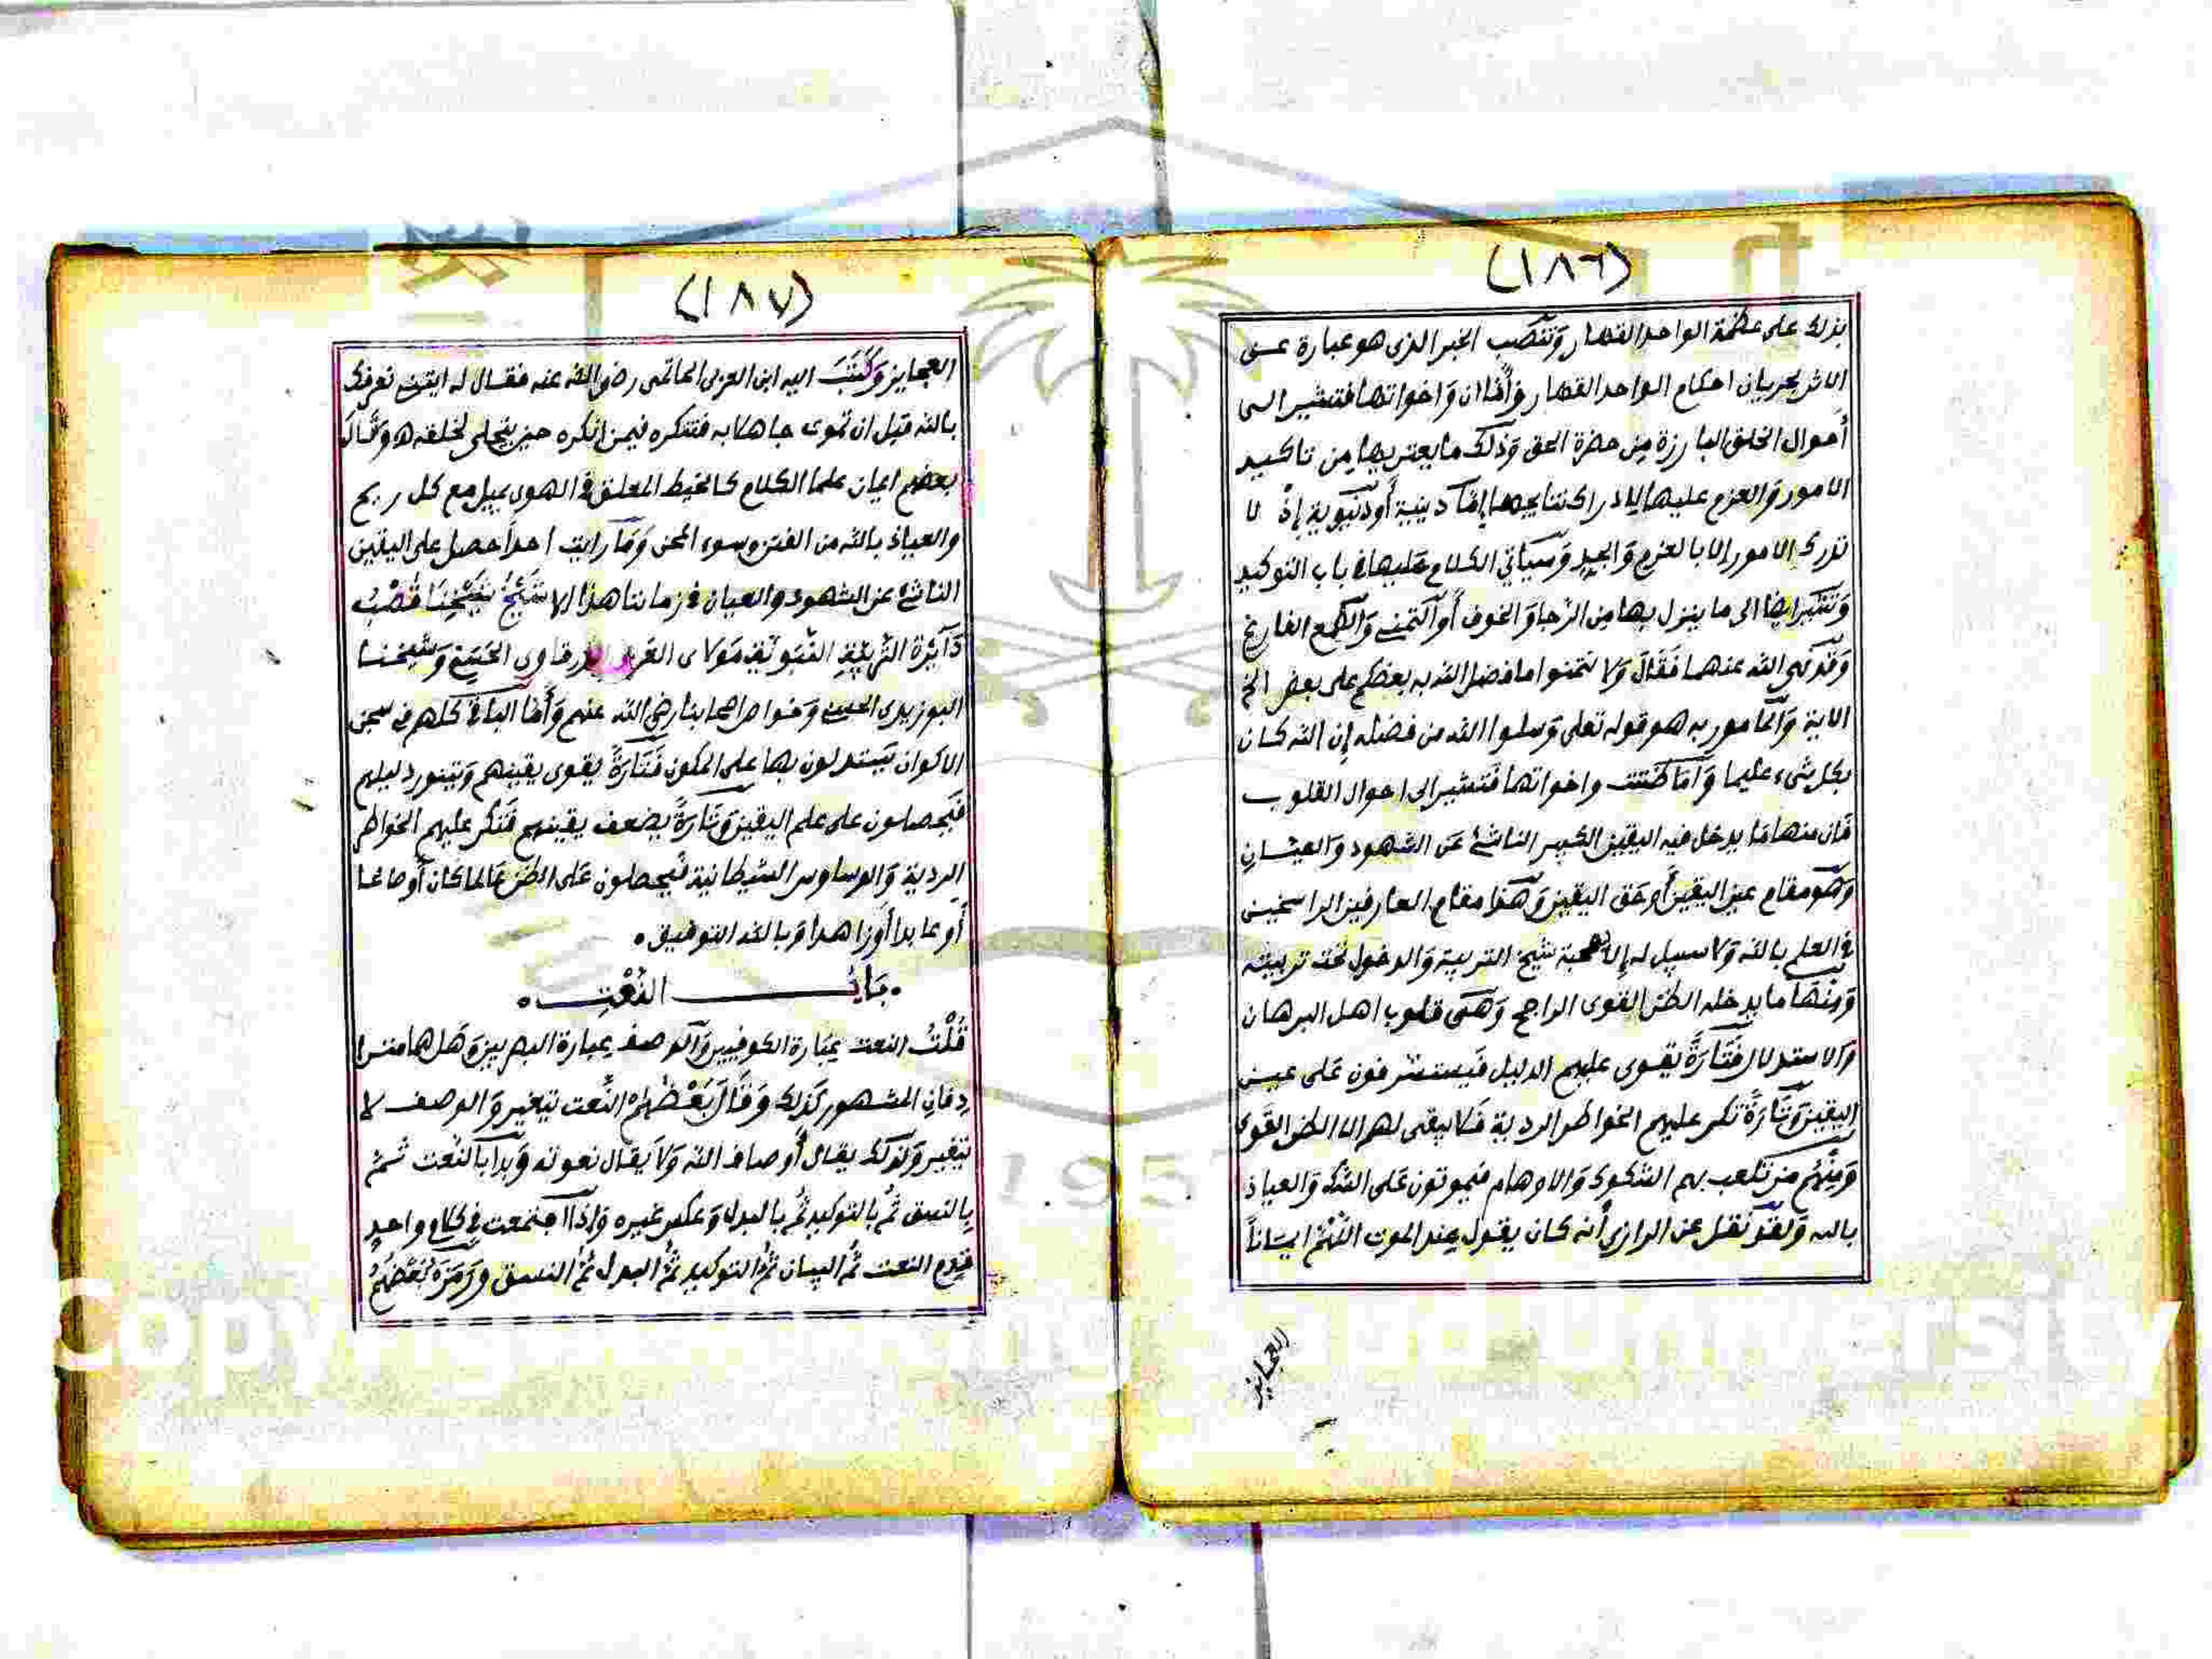 (١٨٦)
بذلك على عظمة الواحد القهار وتنصب الخبر الذى هو عبارة عن
الاثر بجريان احكام الواحد القهار وأما ان واخواتها فتشير الى
أحوال الخلق البارزة من حضرة الحق وذلك ما يعتريها من تاكيد
الامور والعزم عليها لادراك نتايجها إما دينية أو دنيوية إذ لا
تدرك الامور إلا بالعزم والجد وسياتي الكلام عليها في باب التوكيد
وتشير ايضا الى ما ينزل بها من الرجا والخوف أو التمنى والطمع الفارغ
وقد نهى الله عنهما فقال ولا تتمنوا ما فضل الله به بعضكم على بعض الخ
الاية والمامور به هو قوله تعلى وسلوا الله من فضله إن الله كان
بكل شىء عليما وأما ظننت واخواتها فتشير الى احوال القلوب
فان منها ما يدخل فيه اليقين الكبير الناشئ عن الشهود والعيان
وهو مقام عين اليقين أو حق اليقين وهذا مقام العارفين الراسخين
في العلم بالله ولا سبيل له إلا صحبة شيخ التربية والدخول تحت تربيته
ومنها ما يدخله الظن القوى الراجح وهى قلوب اهل البرهان
والاستدلال فتارة يقوى عليهم الدليل فيستشرفون على عين
اليقين وتارة تكر عليهم الخواطر الردية فلا يبقى لهم الا الظن القوى
ومنهم من تلعب بهم الشكوك والاوهام فيموتون على الشك والعياذ
بالله ولقد نقل عن الرازي أنه كان يقول عند الموت اللهم ايمانا
العجايز
(١٨٧)
العجايز وكتب اليه ابن العربى الحاتمى رضى الله عنه فقال له ايتنى نعرفك
بالله قبل ان تموت جاهلا به فتنكره فيمن انكره حين يتجلى لخلقه ه وقال
بعضهم ايمان علما الكلام كالخيط المعلق في الهوى يميل مع كل ريح
والعياذ بالله من الفتن وسوء المحن وما رايت احدا حصل على اليقين
الناشئ عن الشهود والعيان في زماننا هذا الا شيخ شيخنا قطب
دائرة التربية النبوية مولاى العربى الدرقاوى الحسنى وشيخنا
البوزيدى الحسنى وخواص اصحابنا رضى الله عنهم وأما الباقى كلهم في سجن
الاكوان يستدلون بها على المكون فتارة يقوى يقينهم ويتنور دليلهم
فيحصلون على علم اليقين وتارة يضعف يقينهم فتكر عليهم الخواطر
الردية والوساوس الشيطانية فيحصلون على الظن عالما كان أو صالحا
أو عابدا أو زاهدا وبالله التوفيق.
.باب النعت.
قلت النعت عبارة الكوفيين والوصف عبارة البصريين وهل هما مترا
دفان المشهور كذلك وقال بعضهم النعت يتغير والوصف لا
يتغير ولذلك يقال أوصاف الله ولا يقال نعوته وبدا بالنعت ثم
بالنسق ثم بالتوكيد ثم بالبدل وعكس غيره وإذا اجتمعت في كلام واحد
قدم النعت ثم البيان ثم التوكيد ثم البدل ثم النسق ورمزه بعضهم